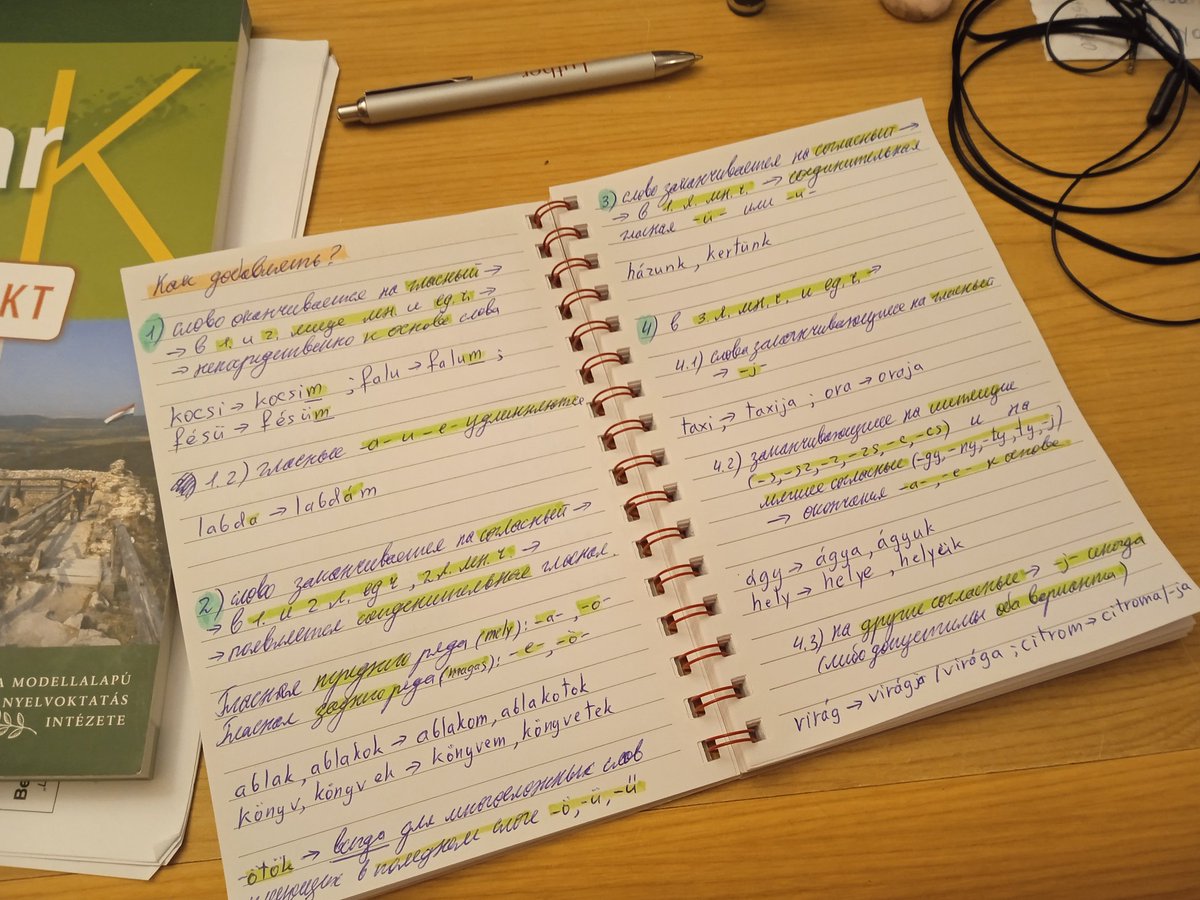 r
K
KT
A MODELLALAPÚ
NYELVOKTATÁS
INTÉZETE
Luther
Как добавлять?
1) слово оканчивается на гласный →
→ в 1. и 2. лице мн и ед.ч. →
→ непосредственно к основе слова
kocsi → kocsim ; falu → falum ;
fésű → fésűm
1.2) гласные -а- и -е- удлиняются
labda → labdám
2) слово заканчивается на согласный →
→ в 1. и 2 л. ед.ч, 2.л. мн.ч. →
→ появляется соединительная гласная.
Гласная переднего ряда (mély): -a-, -o-
Гласная заднего ряда (magas): -e-, -ö-
ablak, ablakok → ablakom, ablakotok
könyv, könyvek → könyvem, könyvetek
-ötök → всегда для многосложных слов
в последнем слоге -ö, -ü, -ű
3) слово заканчивается на согласный →
→ в 1. л. мн.ч. → соединительная
гласная -u- или -ü-
házunk, kertünk
4) в 3.л. мн.ч. и ед.ч. →
4.1) слова заканчивающиеся на гласный
→ -j-
taxi → taxija ; óra → órája
4.2) заканчивающиеся на шипящие
(-s, -sz, -z, -zs, -c, -cs) и на
мягкие согласные (-gy, -ny, -ty, -j)
→ окончания -a-, -e- к основе
ágy → ágya, ágyuk
hely → helye, helyük
4.3) на другие согласные → -j- иногда
(либо допустимы оба варианта)
virág → virágja / virága ; citrom → citroma/-ja